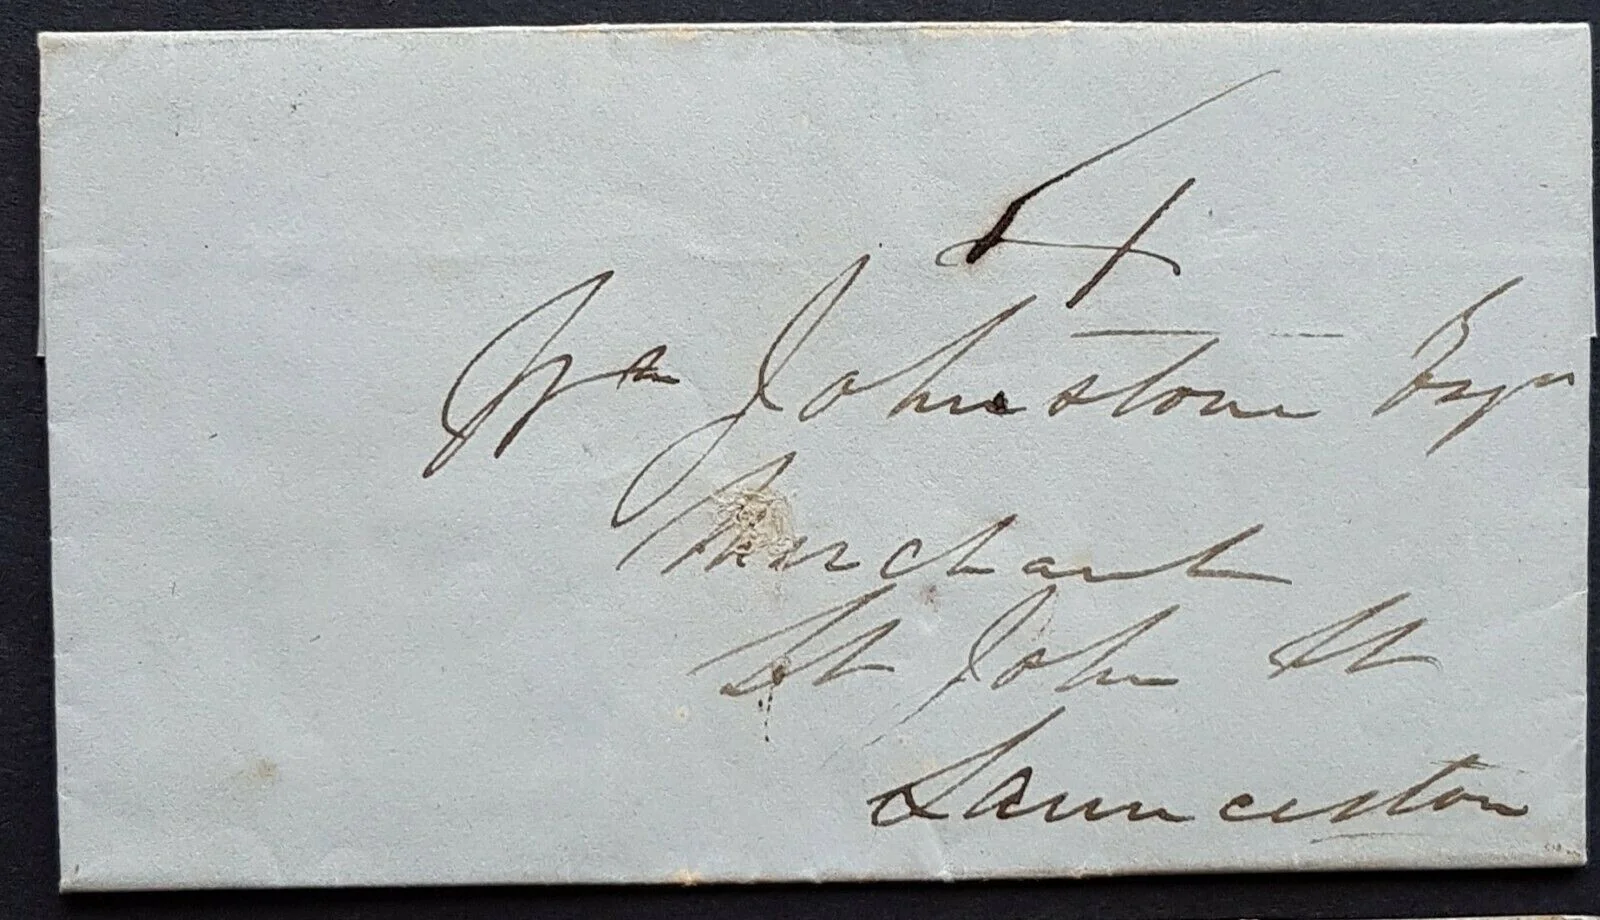 4
Wm Johnstone Esqr
Merchant
St John St
Launceston